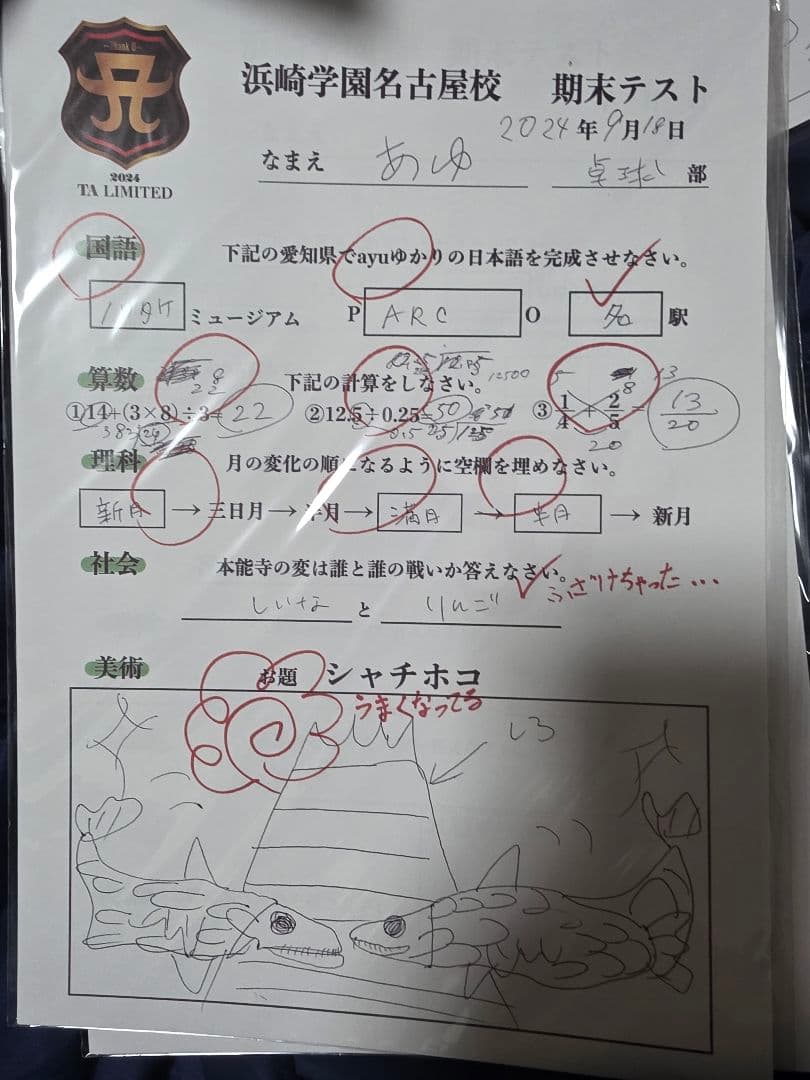 Thank U
2024
TA LIMITED
浜崎学園名古屋校 期末テスト
2024年9月18日
なまえ あゆ 卓球 部
国語 下記の愛知県でayuゆかりの日本語を完成させなさい。
ノリタケ ミュージアム P ARC O 名 駅
算数 下記の計算をしなさい。
①14+(3×8)÷3= 22 ②12.5÷0.25= 50 ③ 1/4 + 2/5 = 13/20
理科 月の変化の順になるように空欄を埋めなさい。
新月 → 三日月 → 半月 → 満月 → 半月 → 新月
社会 本能寺の変は誰と誰の戦いか答えなさい。
ふざけちゃった…
しいな と りんご
美術 お題 シャチホコ
うまくなってる
しろ